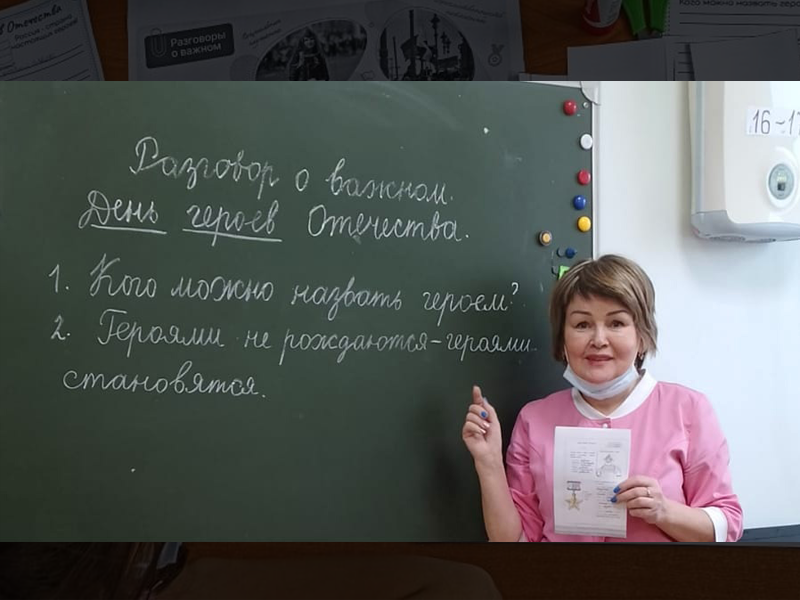 Отечества
Разговоры
о важном
Кого можно назвать геро
16-17
Разговор о важном.
День героев Отечества.
1. Кого можно назвать героем?
2. Героями не рождаются - героями
становятся.